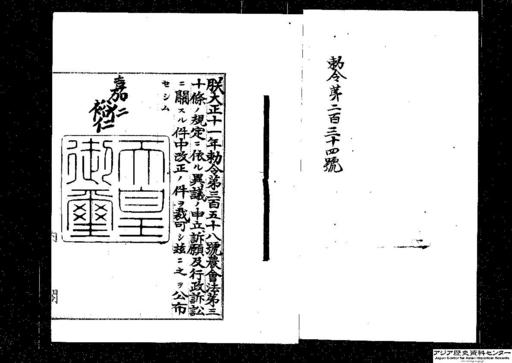 勅令第二百三十四號
朕大正十一年勅令第三百五十八號農會法第三
十條ノ規定ニ依ル異議ノ申立訴願及行政訴訟
ニ關スル件中改正ノ件ヲ裁可シ玆ニ之ヲ公布
セシム
嘉仁
裕仁
天皇
御璽
アジア歴史資料センター
Japan Center for Asian Historical Records